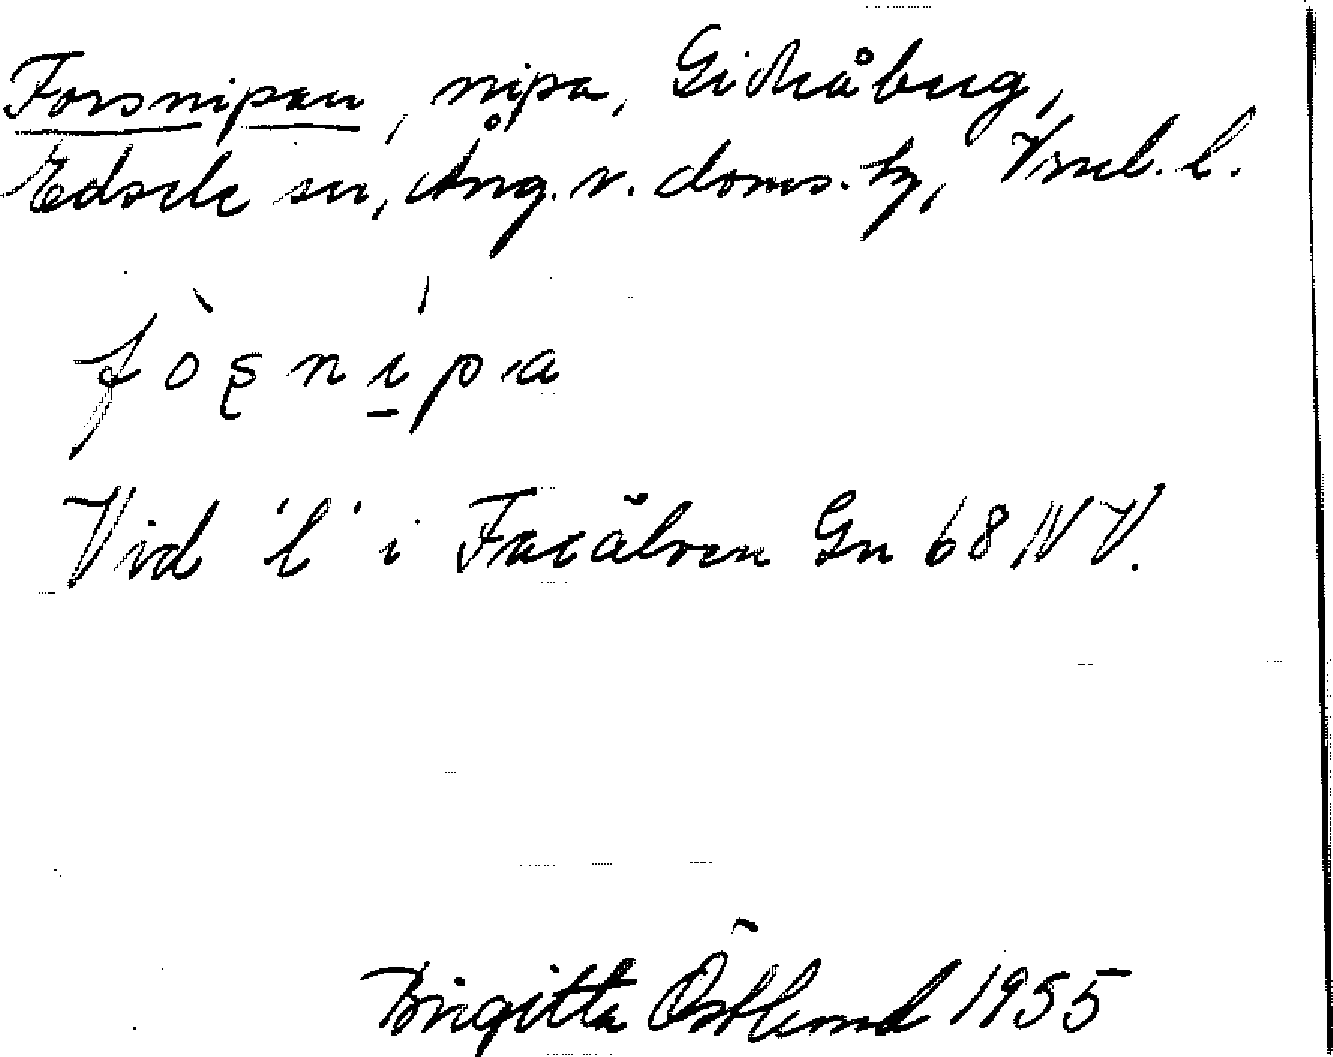 Forsnipan, nipa, Gideåberg,
Edsele sn, Ång. v. doms. hg, Vnrl. l.
fòʂnìpa
Vid 'l' i Faxälven Gn 68 NV.
Birgitta Östlund 1955